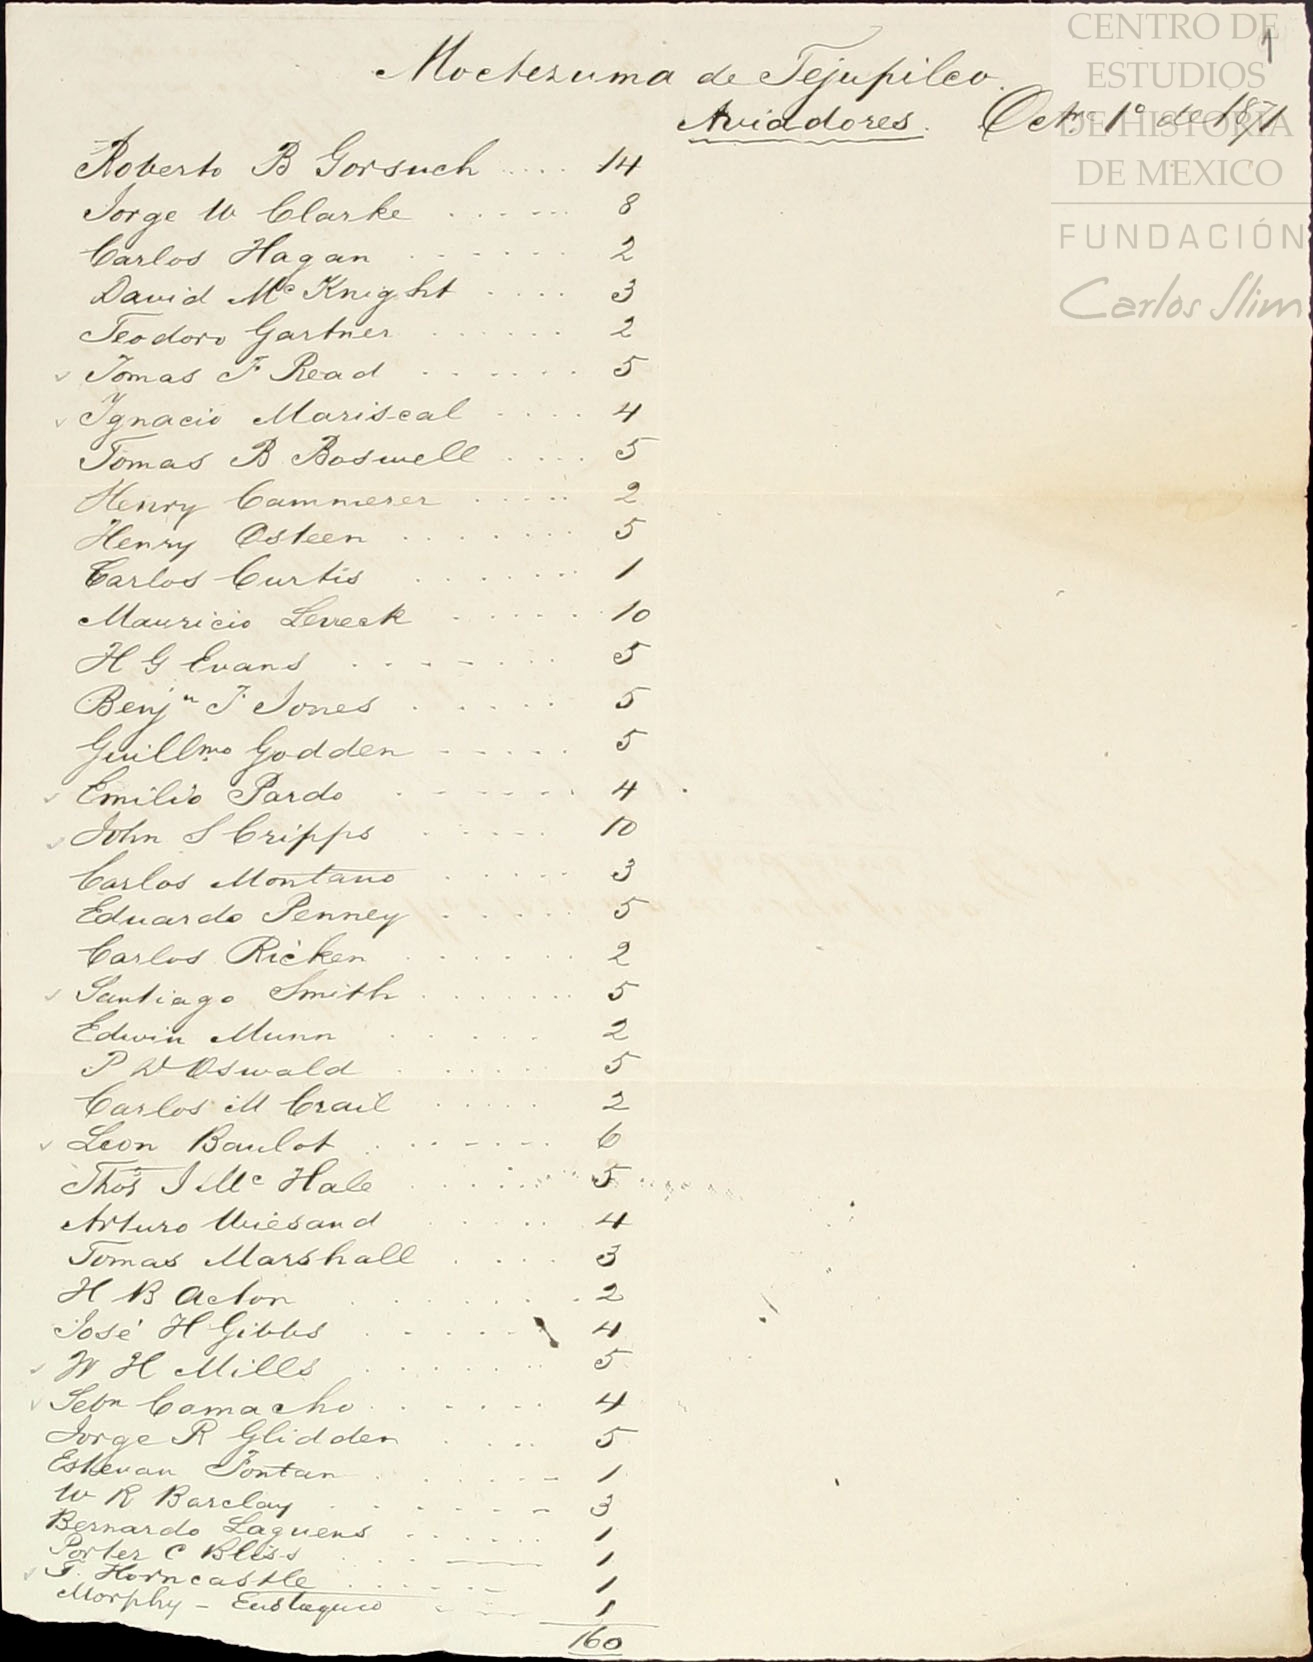 CENTRO DE
ESTUDIOS
DE HISTORIA
DE MEXICO
FUNDACIÓN
Carlos Slim
1
Moctezuma de Tejupilco.
Aviadores. Octre 1º de 1871
Roberto B Gorsuch ..... 14
Jorge W Clarke ...... 8
Carlos Hagan ...... 2
David Mc Knight .... 3
Teodoro Gartner ...... 2
✓ Tomas F Read ...... 5
✓ Ygnacio Mariscal .... 4
Tomas B Boswell .... 5
Henry Cammerer ..... 2
Henry Osteen ....... 5
Carlos Curtis ...... 1
Mauricio Leveck ..... 10
H G Evans ....... 5
Benjn F Jones ..... 5
Guillmo Godden ..... 5
✓ Emilio Pardo ...... 4
✓ John S Cripps ..... 10
Carlos Montano ..... 3
Eduardo Penney ..... 5
Carlos Ricken ...... 2
✓ Santiago Smith ...... 5
Edwin Munn ..... 2
P W Oswald ..... 5
Carlos M Crail ..... 2
✓ Leon Baulot ...... 6
Thos J Mc Hale ..... 5
Arturo Wiesand ..... 4
Tomas Marshall .... 3
H B Acton ....... 2
José H Gibbs ..... 4
✓ W H Mills ...... 5
✓ Sebn Camacho ...... 4
Jorge R Glidden .... 5
Estevan Fontan ...... 1
W R Barclay ...... 3
Bernardo Laguens ..... 1
Porter C Bliss .... 1
✓ T. Horncastle ...... 1
Morphy - Eustaquio .... 1
160